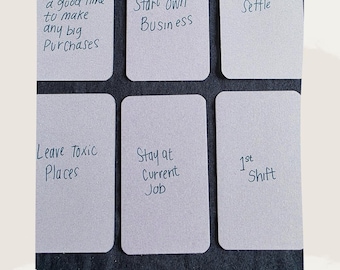 a good time
to make
any big
Purchases
Start Own
Business
Settle
Leave Toxic
Places
Stay at
Current
Job
1st
Shift